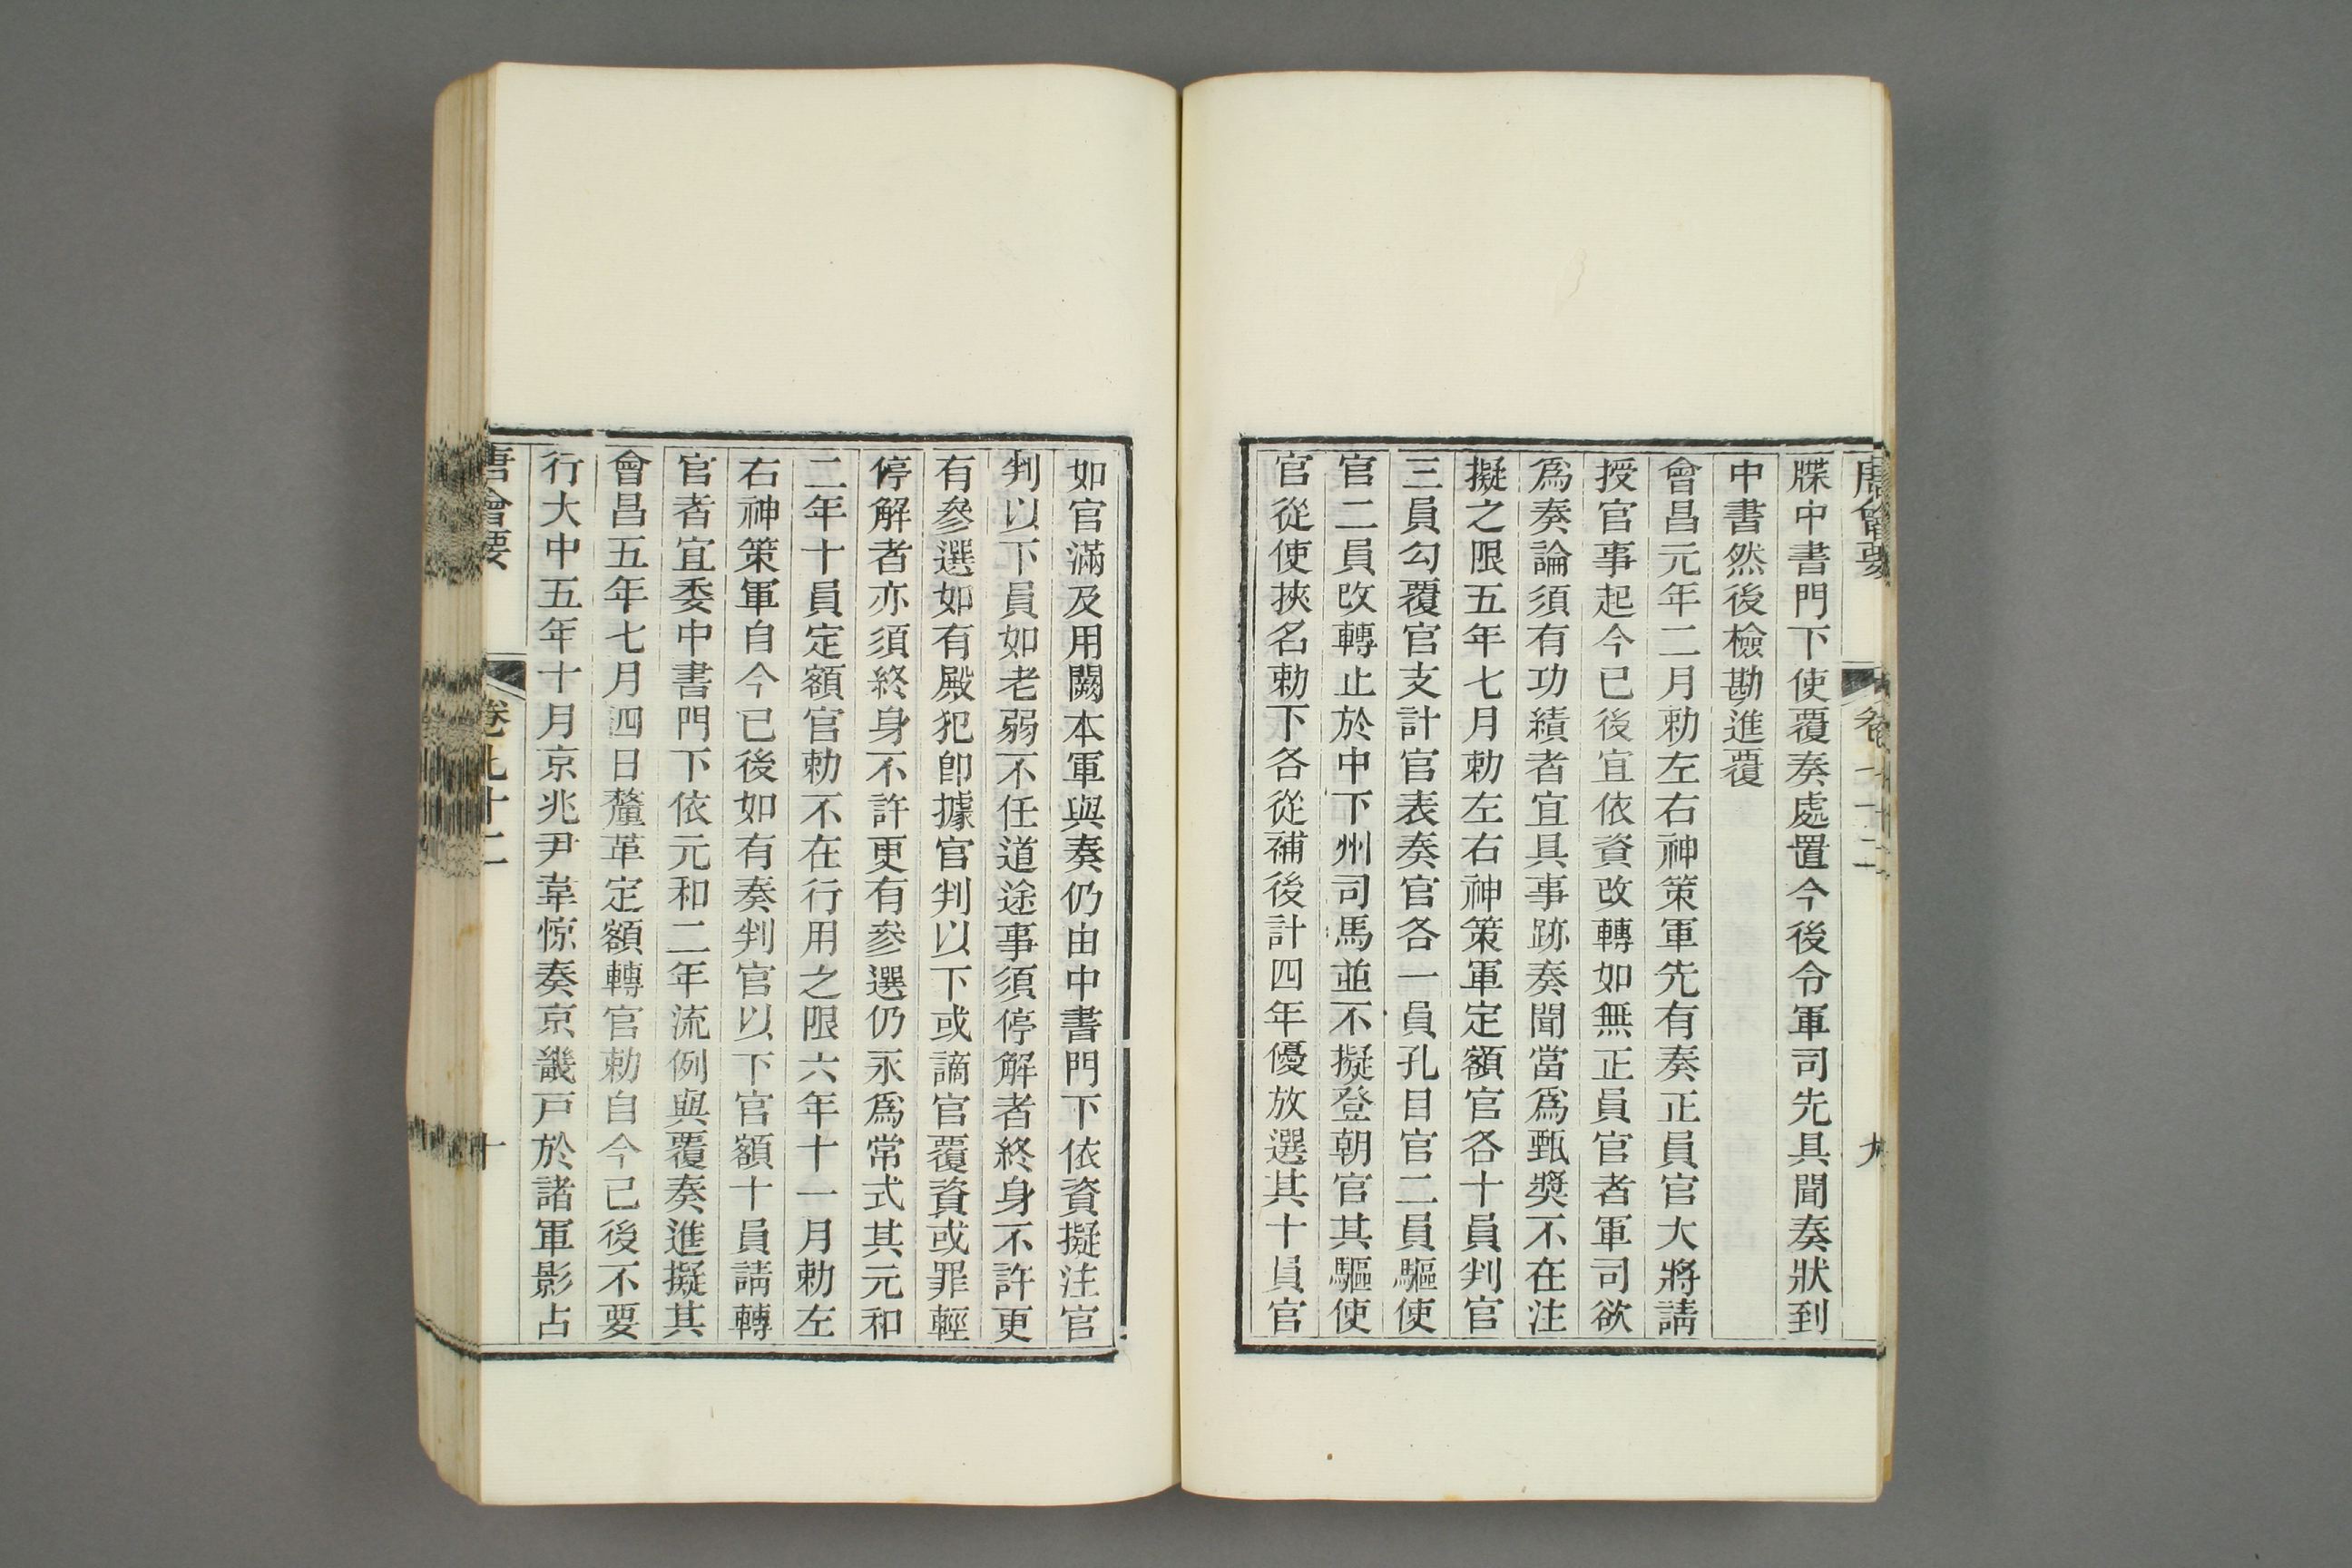 唐會要 卷七十二 九
牒中書門下使覆奏處置今後令軍司先具聞奏狀到
中書然後檢勘進覆
會昌元年二月勅左右神策軍先有奏正員官大將請
授官事起今已後宜依資改轉如無正員官者軍司欲
爲奏論須有功績者宜具事跡奏聞當爲甄奬不在注
擬之限五年七月勅左右神策軍定額官各十員判官
三員勾覆官支計官表奏官各一員孔目官二員驅使
官二員改轉止於中下州司馬並不擬登朝官其驅使
官從使挾名勅下各從補後計四年優放選其十員官
如官滿及用闕本軍與奏仍由中書門下依資擬注官
判以下員如老弱不任道途事須停解者終身不許更
有參選如有殿犯卽據官判以下或謫官覆資或罪輕
停解者亦須終身不許更有參選仍永爲常式其元和
二年十員定額官勅不在行用之限六年十一月勅左
右神策軍自今已後如有奏判官以下官額十員請轉
官者宜委中書門下依元和二年流例與覆奏進擬其
會昌五年七月四日釐革定額轉官勅自今已後不要
行大中五年十月京兆尹韋悰奏京畿戸於諸軍影占
唐會要 卷七十二 十